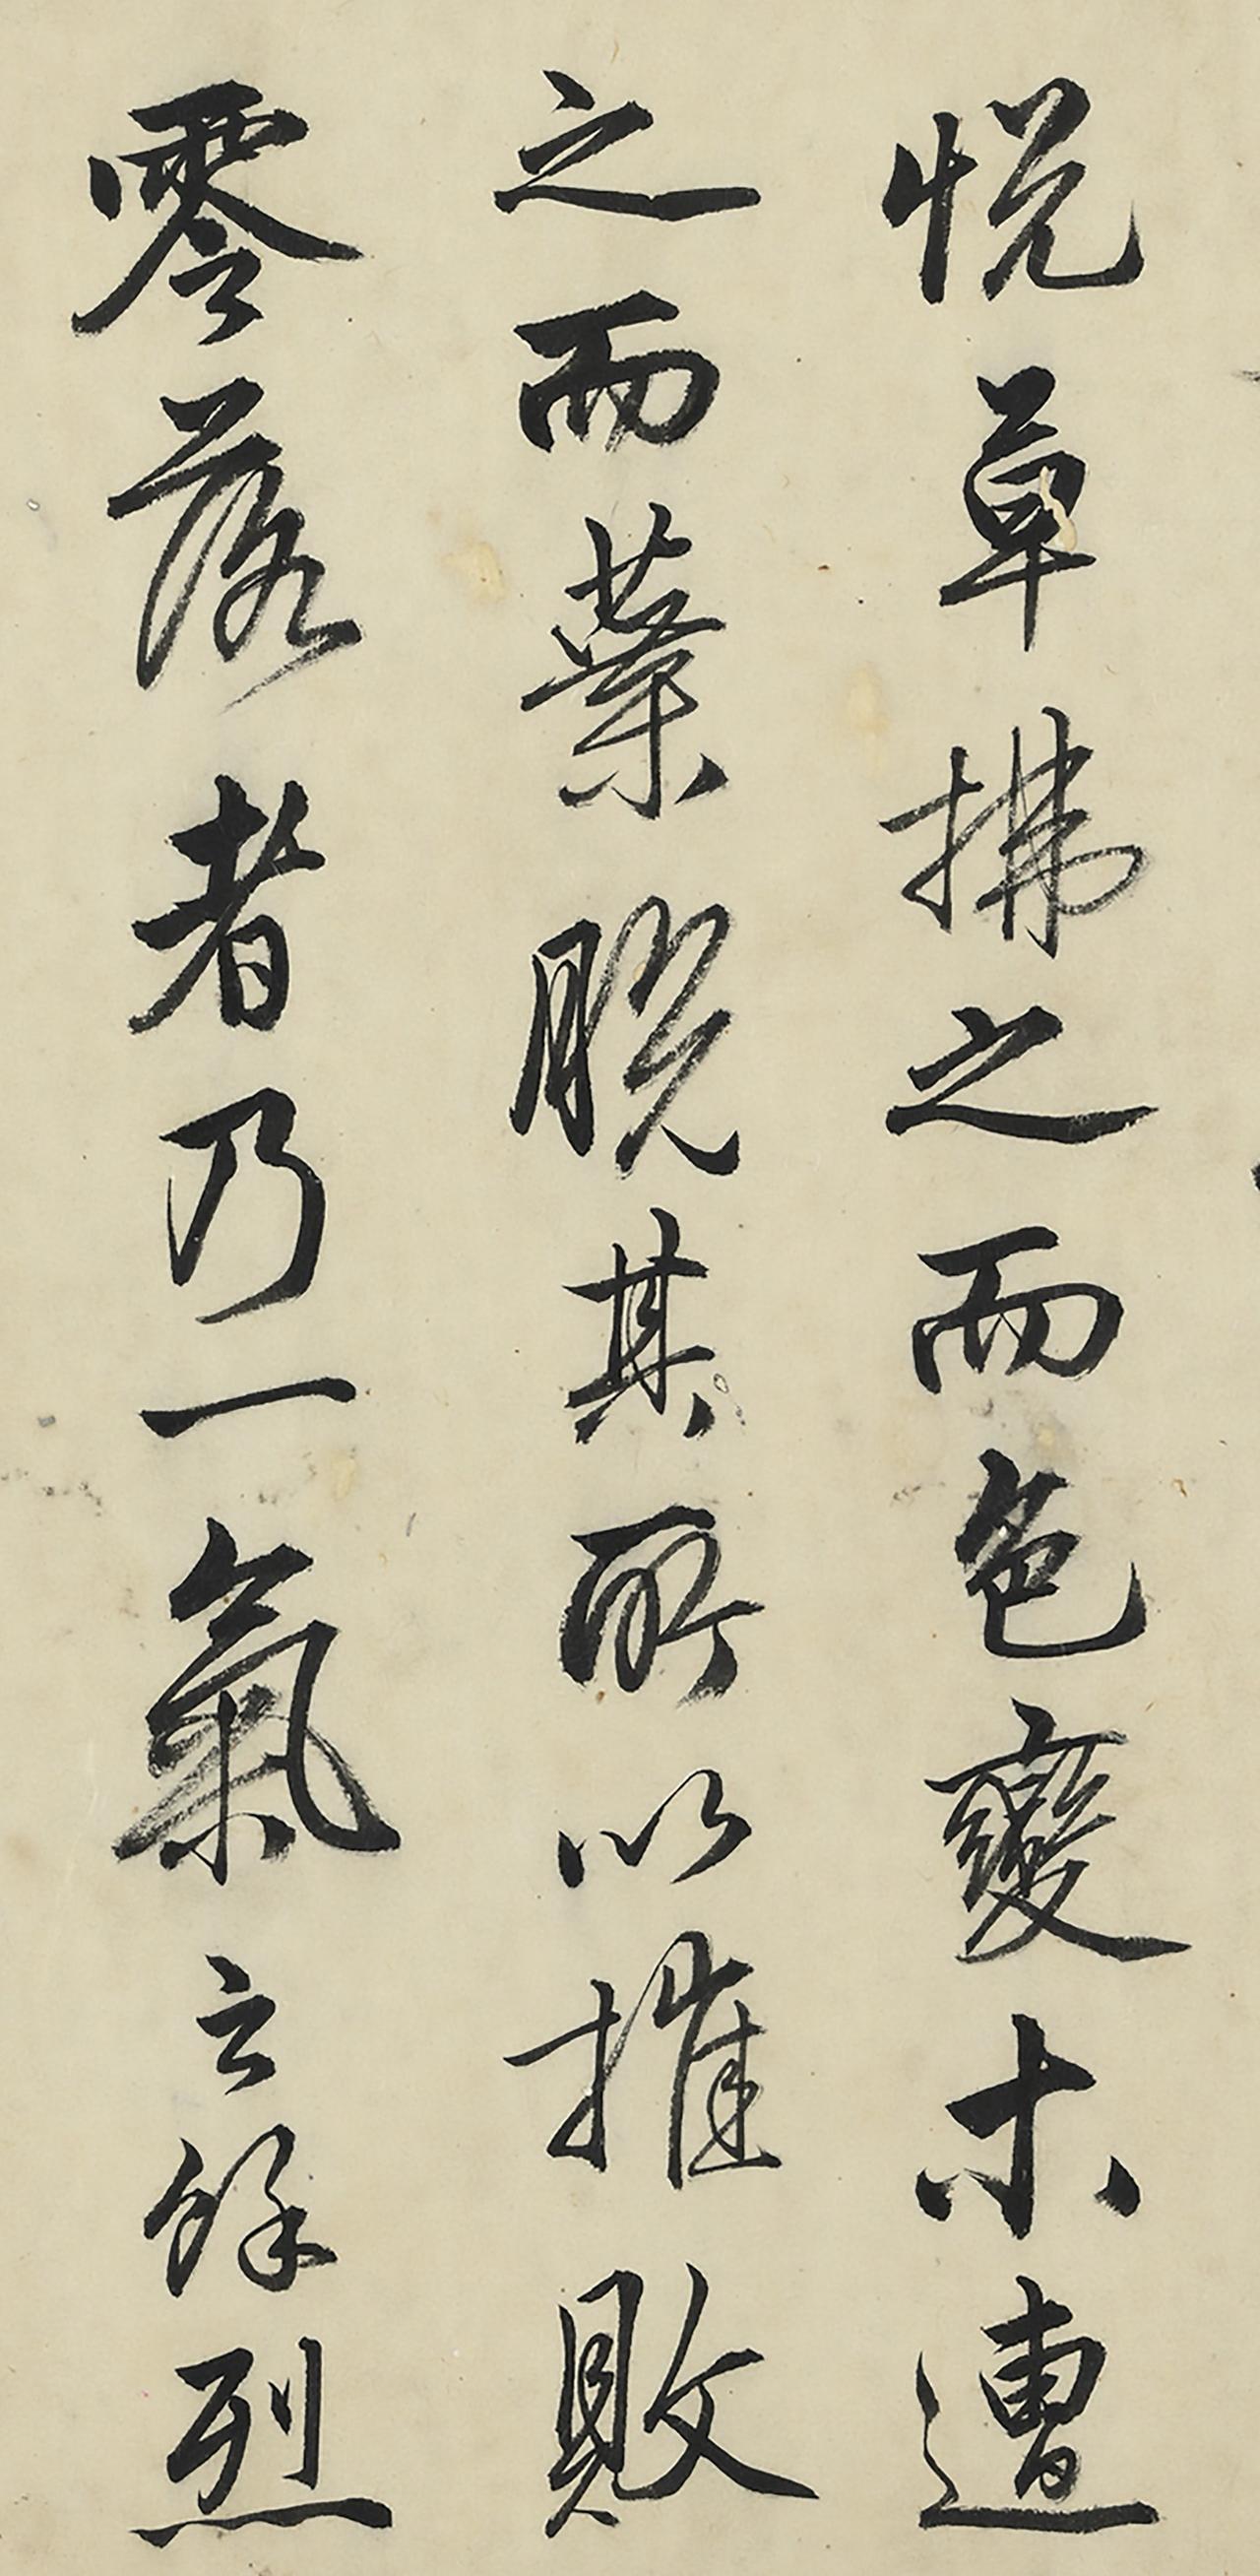 悅草拂之而色變木遭
之而葉脫其所以摧敗
零落者乃一氣之餘烈